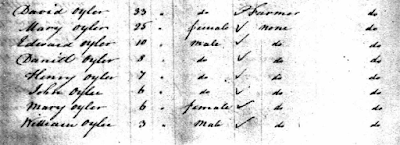 David Oyler 33 " do Farmer do
Mary Oyler 25 " female ✓ none do
Edward Oyler 10 " male ✓ do do
Daniel Oyler 8 " do ✓ do do
Henry Oyler 7 " do ✓ do do
John Oyler 6 " do ✓ do do
Mary Oyler 6 " female ✓ do do
William Oyler 3 " male ✓ do do